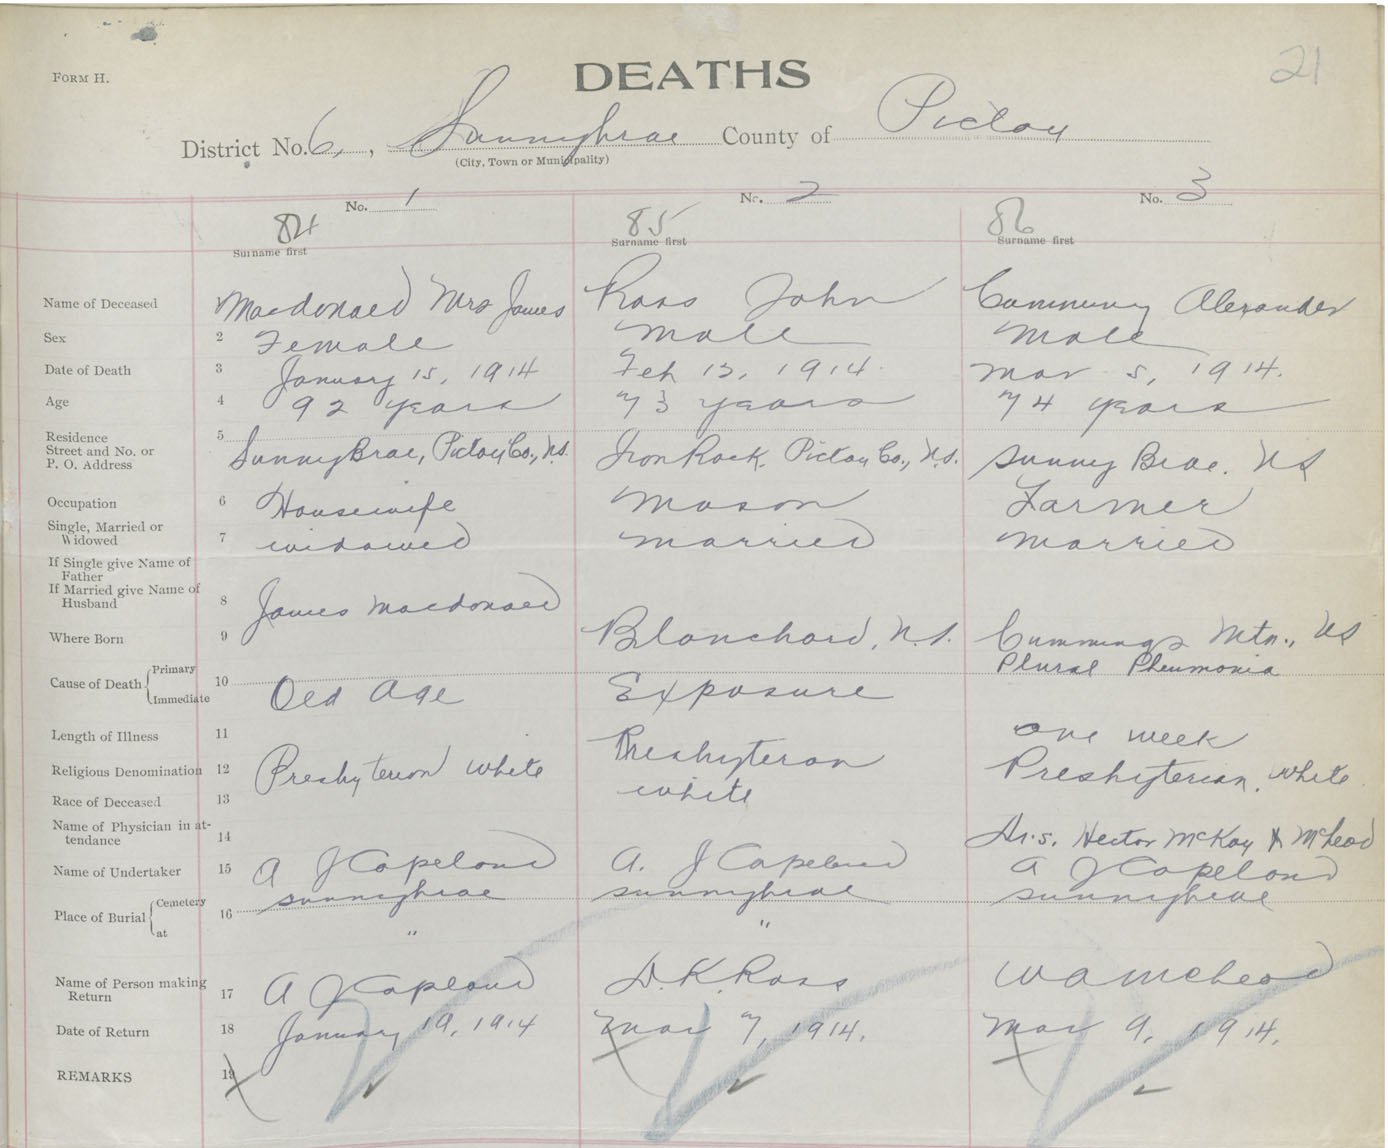 21
FORM H.
DEATHS
District No. 6, , Sunnybrae County of Pictou
(City, Town or Municipality)
No. 1 No. 2 No. 3
84 85 86
Surname first Surname first Surname first
Name of Deceased Macdonald Mrs James Ross John Cumming Alexander
Sex 2 Female Male Male
Date of Death 3 January 15, 1914 Feb 13, 1914. Mar 5, 1914.
Age 4 92 years 73 years 74 years
Residence
Street and No. or
P. O. Address 5 Sunny Brae, Pictou Co., N.S. Iron Rock. Pictou Co., N.S. Sunny Brae. NS
Occupation 6 Housewife Mason Farmer
Single, Married or
Widowed 7 widowed married married
If Single give Name of
Father
If Married give Name of
Husband 8 James Macdonald
Where Born 9 Blanchard, N.S. Cummings Mtn., NS
Cause of Death Primary Immediate 10 Old Age Exposure Plural Pneumonia
Length of Illness 11 one week
Religious Denomination 12 Presbyterion white Presbyteron Presbyterian, white
Race of Deceased 13 white
Name of Physician in at-
tendance 14 Dr.s. Hector McKay & McLeod
Name of Undertaker 15 A J Copeland A. J Copeland A J Copeland
Place of Burial Cemetery at 16 sunnybrae sunnybrae sunnybrae
" "
Name of Person making
Return 17 A J Copeland D. K. Ross W A McLeod
Date of Return 18 January 19, 1914 Mar 7, 1914. Mar 9, 1914.
REMARKS 19